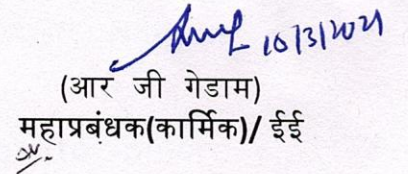 10/3/2021
(आर जी गेडाम)
महाप्रबंधक(कार्मिक)/ ईई